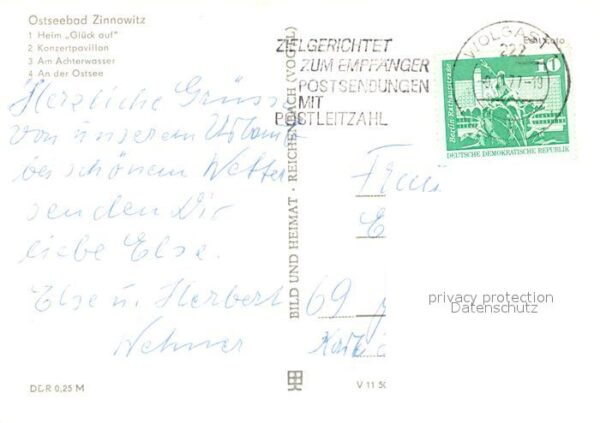 Ostseebad Zinnowitz
1 Heim „Glück auf"
2 Konzertpavillon
3 Am Achterwasser
4 An der Ostsee
Herzliche Grüsse
von unserem Urlaub
bei schönem Wetter
senden Dir
liebe Else.
Else u. Herbert
DDR 0,25 M
BILD UND HEIMAT · REICHENBACH (VOGTL)
V 11 50
ZIELGERICHTET
ZUM EMPFÄNGER
POSTSENDUNGEN
MIT
POSTLEITZAHL
WOLGAST
222
10
Berlin, Rathausstraße
DEUTSCHE DEMOKRATISCHE REPUBLIK
Frau
E
69
privacy protection
Datenschutz